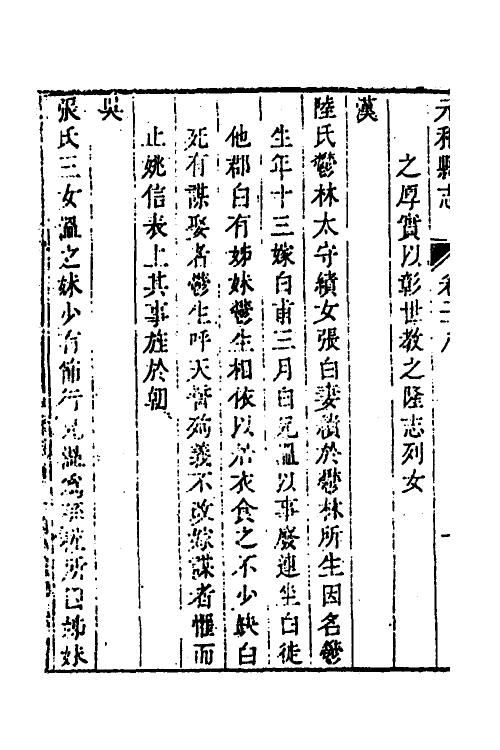 元和縣志 卷二十八
之厚實以彰世教之隆志列女
漢
陸氏鬱林太守績女張白妻績於鬱林所生因名鬱
生年十三嫁白甫三月白兄溫以事廢連坐白徒
他郡白有姊妹鬱生相依以居衣食之不少缺白
死有謀娶者鬱生呼天誓殉義不改嫁謀者慚而
止姚信表上其事旌於朝
吳
張氏三女溫之妹少有節行兄溫為孫權所 姊妹